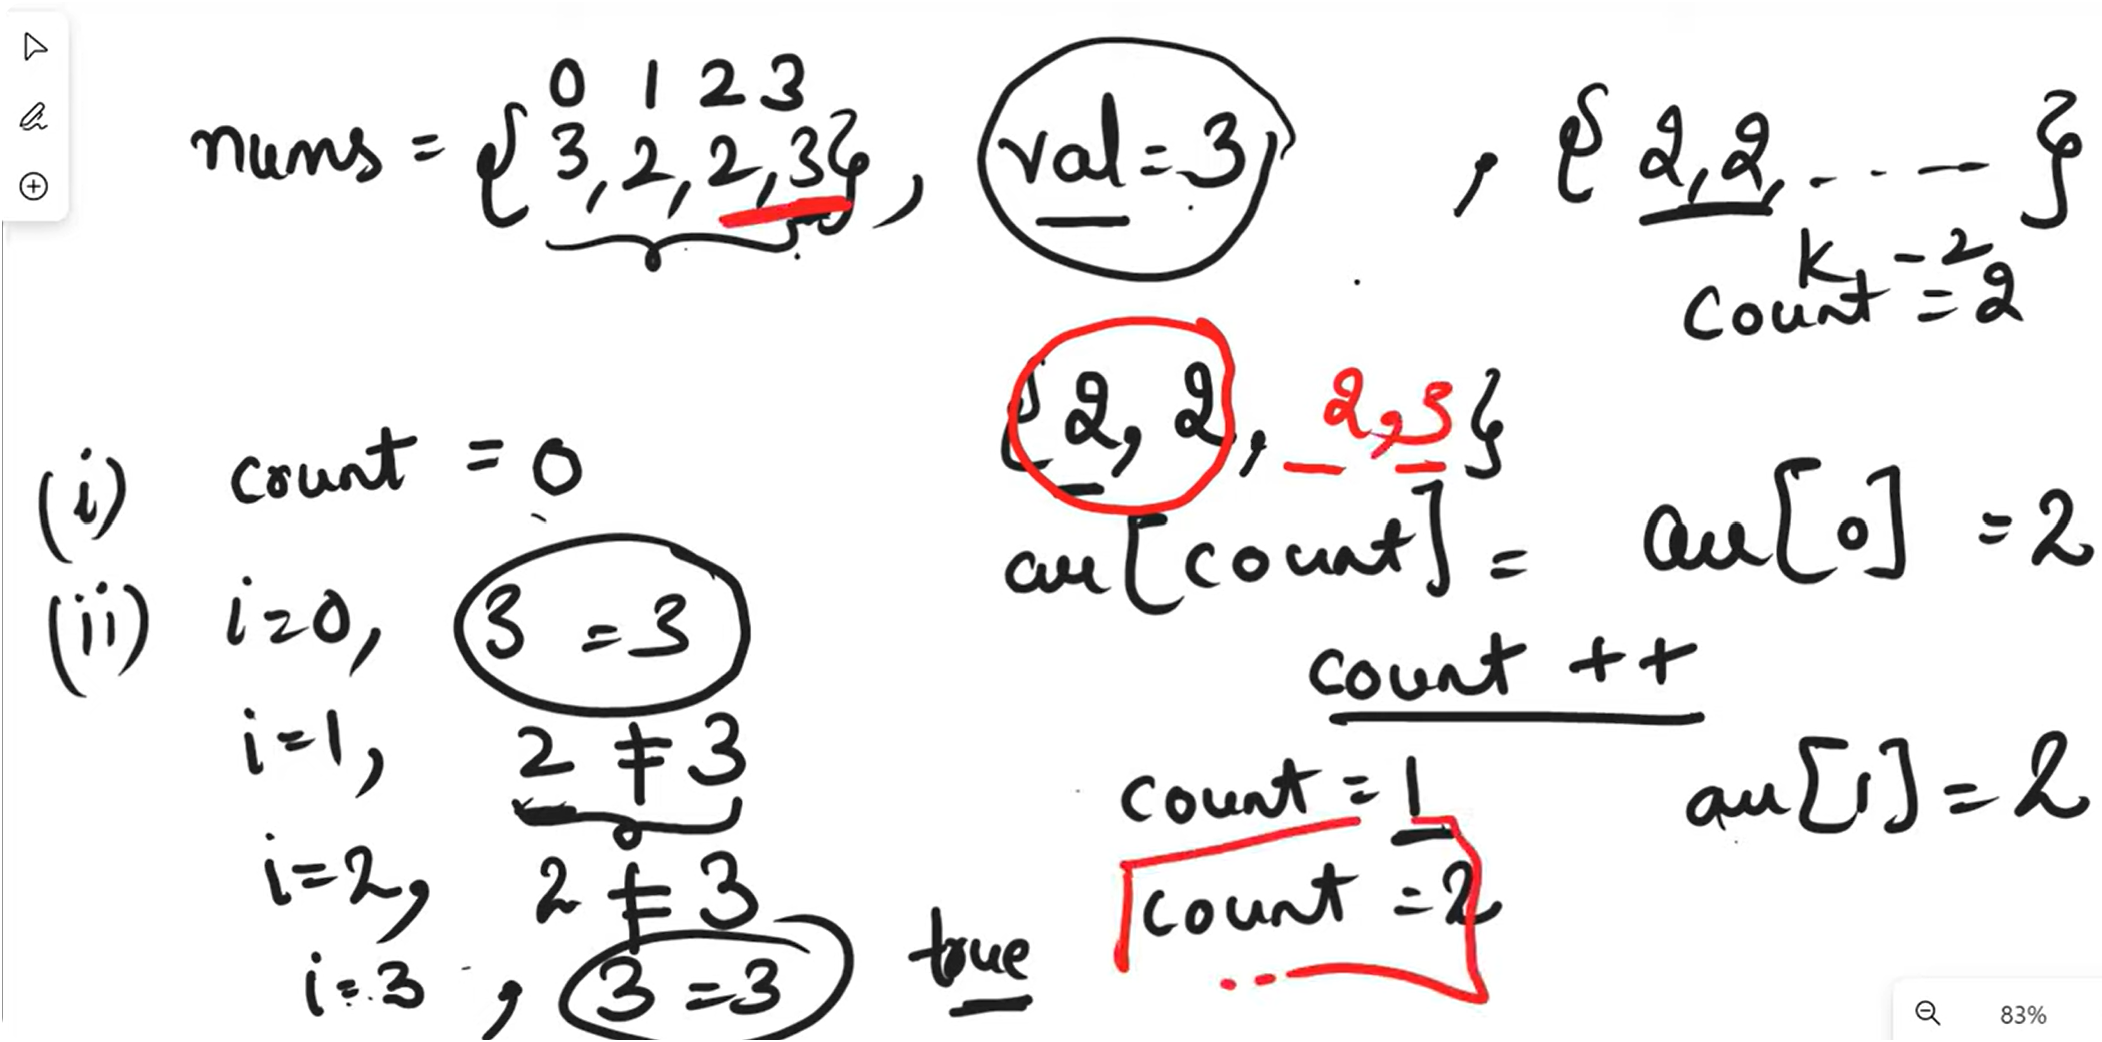 0 1 2 3
nums = {3, 2, 2, 3}, val = 3, {2, 2, . . . _ _ }
k, - 2
count = 2
{2, 2, 2, 3}
(i) count = 0
arr[count] = arr[0] = 2
(ii) i=0, 3 = 3
count ++
i=1, 2 ≠ 3
count = 1 arr[1] = 2
i=2, 2 ≠ 3
count = 2
i=3, 3 = 3 true
83%